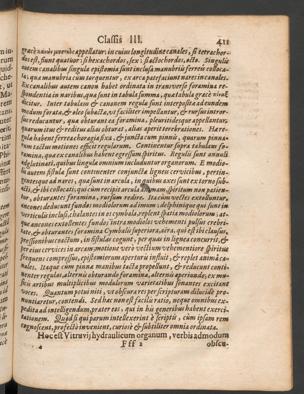 Classis III. 421
græcè appellatur: in cuius longitudine canales, si tetrachor-
dos est, fiunt quatuor: si hexachordos, sex: si octochordos, octo. Singulis
autem canalibus singula epistomia sunt inclusa manubriis ferreis colloca-
ta; quæ manubria cum torquentur, ex arca patefaciunt nares in canales.
Ex canalibus autem canon habet ordinata in transverso foramina re-
spondentia in naribus, quæ sunt in tabula summa, quæ tabula græcè
dicitur. Inter tabulam & canonem regulæ sunt interpositæ ad eundem
modum foratæ, & oleo subactæ, ut faciliter impellantur, & rursus introrsus
reducantur, quæ obturant ea foramina, plinthidesque appellantur,
quarum itus & reditus alias obturat, alias aperit terebrationes. Hæ re-
gulæ habent ferrea choragia fixa, & juncta cum pinnis, quarum pinna-
rum tactus motiones efficit regularum. Continentur supra tabulam fo-
ramina, quæ ex canalibus habent egressum spiritus. Regulis sunt annuli
adglutinati, quibus lingulæ omnium includuntur organorum. E modio-
lis autem fistulæ sunt continenter conjunctæ ligneis cervicibus, pertin-
gentesque ad nares, quæ sunt in arcula, in quibus axes sunt ex torno sub-
acti, & ibi collocati; qui cum recipit arcula animam spiritum non patien-
tur, obturantes foramina, rursum redire. Ita cum vectes extolluntur,
ancones deducunt fundos modiolorum ad imum; delphinique qui sunt in
verticulis inclusi, chalantes in os cymbala replent spatia modiolorum: at-
que ancones extollentes fundos intra modiolos vehementi pulsus crebri-
tate, & obturantes foramina Cymbalis superiora, aëra, qui est ibi clausus,
pressionibus coactum, in fistulas cogunt, per quas in lignea concurrit, &
per eius cervices in arcam motione verò vectium vehementiore spiritus
frequens compressus, epistomiorum aperturis influit, & replet animâ ca-
nales. Itaque cum pinnæ manibus tactæ propellunt, & reducunt conti-
nenter regulas, alternis obturando foramina, alternis aperiundo, ex mu-
sicis artibus multiplicibus modulorum varietatibus sonantes excitant
voces. Quantum potui niti, ut obscura res per scripturam dilucidè pro-
nuntiaretur, contendi. Sed hæc non est facilis ratio, neque omnibus ex-
pedita ad intelligendum, præter eos, qui in his generibus habent exerci-
tationem. Quòd si qui parum intellexerint è scriptis, cum ipsam rem
cognoscent, profectò invenient, curiosè & subtiliter omnia ordinata.
Hoc est Vitruvij hydraulicum organum, verbis admodum
Fff 2 obscu-